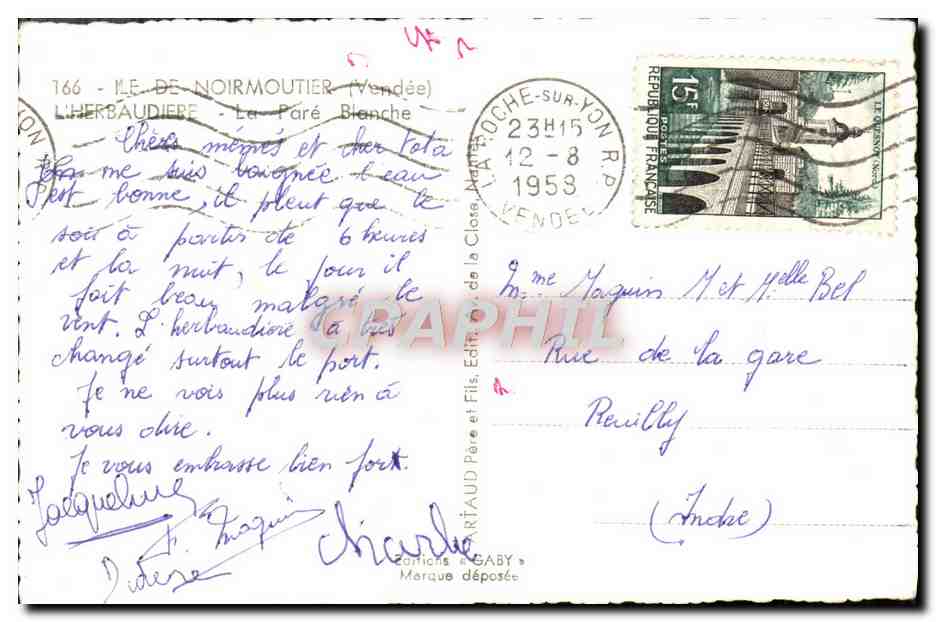 166 - ILE DE NOIRMOUTIER (Vendée)
L'HERBAUDIERE - La Paré Blanche
Chers mémés et cher Tota
me suis baignée l'eau
est bonne, il pleut que le
soir à partir de 6 heures
et la nuit, le jour il
fait beau malgré le
vent. L'herbaudière à très
changé surtout le port.
Je ne vois plus rien à
vous dire.
Je vous embrasse bien fort.
Jacqueline
F. Maquin
Charle
ARTAUD Père et Fils, Edit., de la Close, Nantes
Editions « GABY »
Marque déposée
LA ROCHE-SUR-YON R.P
23H15
12 - 8
1958
VENDEE
15F
POSTES
REPUBLIQUE FRANÇAISE
LE QUESNOY (Nord)
Mme Maquin M et Melle Bel
Rue de la gare
Reuilly
(Indre)
CPAPHIL